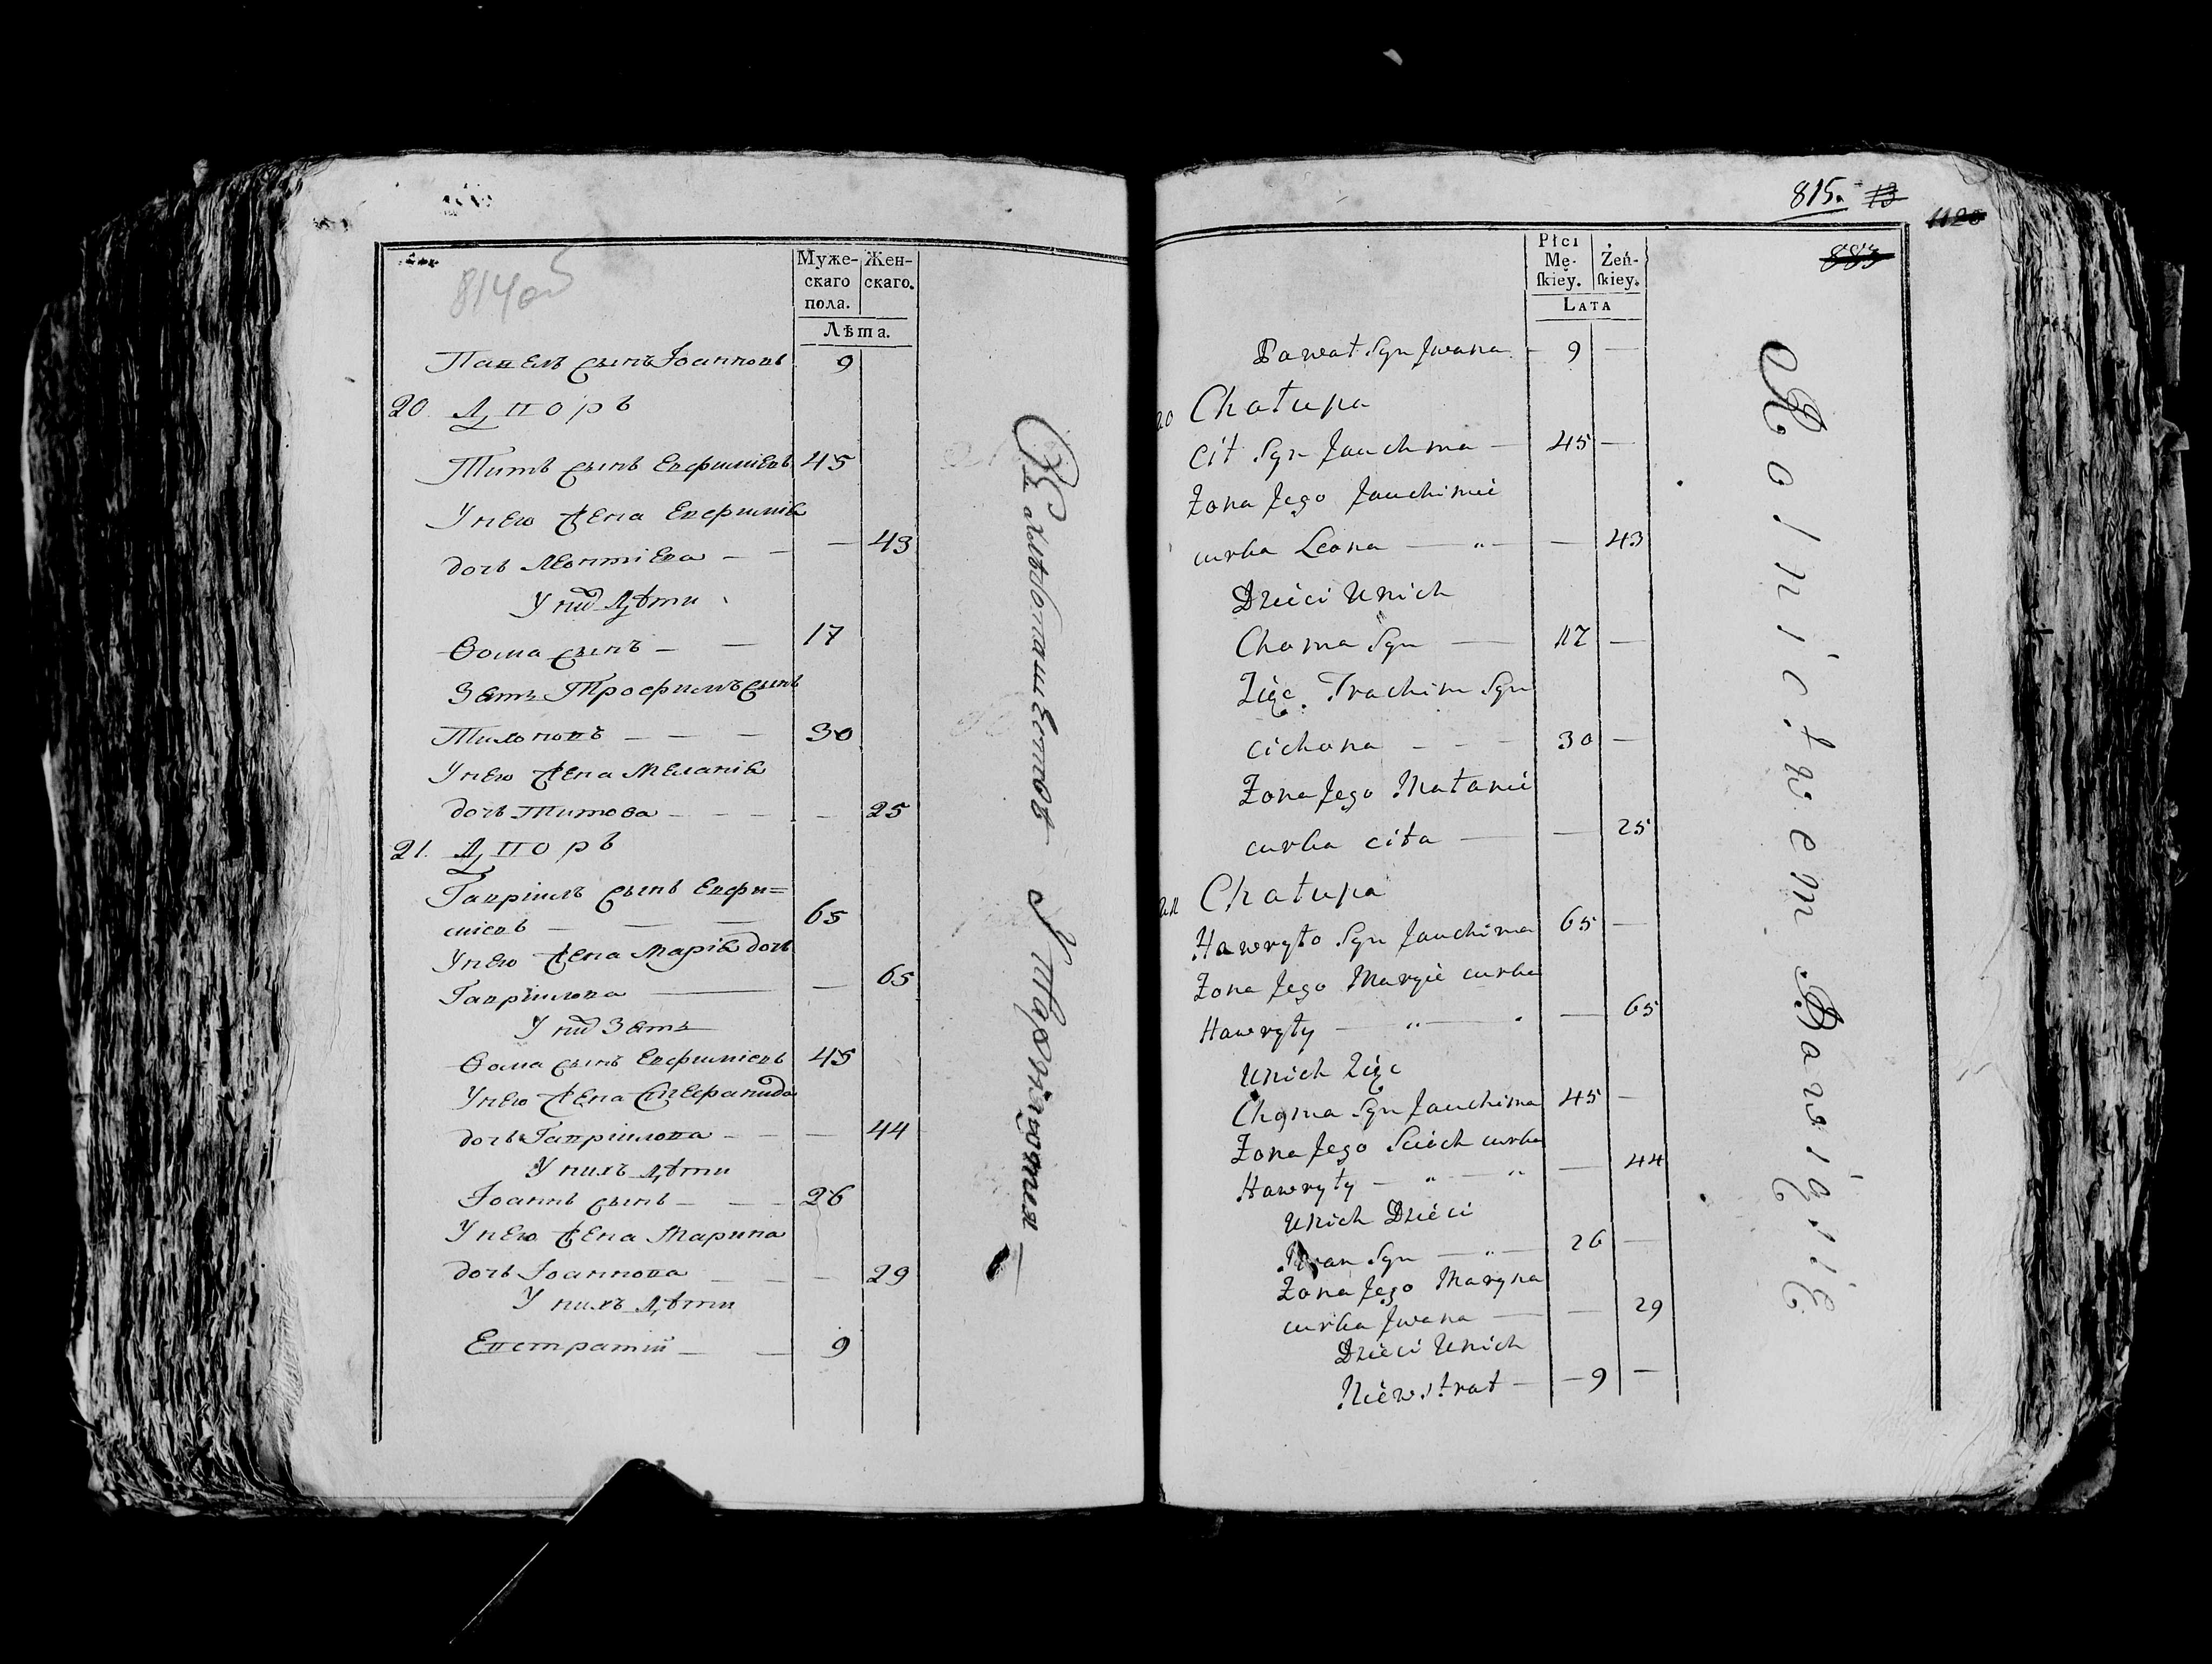 814об
Муже-
скаго
пола.
Жен-
скаго.
Лѣта.
Павелъ сынъ Іоанновъ 9
20. Дворъ
Титъ сынъ Евфиміевъ 45
У нею жена Евфимія
дочь Леонтіева — — — 43
У них дѣти
Ѳома сынъ — — 17
Зять Трофимъ сынъ
Тихоновъ — — — 30
У нею жена Меланія
дочь Титова — — — — 25
21. Дворъ
Гавріилъ сынъ Евфи=
міевъ — — — 65
У нею жена Марія дочь
Гавріилова — — 65
У них Зять
Ѳома сынъ Евфиміевъ 45
У нею жена
дочь Гавріилова — — — 44
У нихъ дѣти
Іоаннъ сынъ — — — 26
У нею жена Марина
дочь Іоаннова — — — 29
У нихъ дѣти
Евстратій — — 9
Въ хлѣбопашествѣ Упражняются —
815. 13
1120
883
Płci
Mę-
ſkiey.
Żeń-
ſkiey.
Lata
Pawał Syn Jwana — 9 —
20 Chałupa
Cit Syn Jauchima — 45 —
Żona Jego Jauchimie
curka Leona — „ — — 43
Dzieci Unich
Choma Syn — 17 —
Zięć Trachim Syn
Cichona — — — 30 —
Żona Jego Małanie
curka cita — — 25
21 Chałupa
Hawryło Syn Jauchima 65 —
Żona Jego Maryie curka
Hawryły — „ — — 65
Unich Zięć
Choma Syn Jauchima 45 —
Żona Jego Scioch curka
Hawryły — „ — „ — 44
Unich Dzieci
Jwan Syn — „ — 26 —
Żona Jego Maryna
curka Jwana — — 29
Dzieci Unich
Niewstrat — — 9 —
Rolnictwem Bawią się